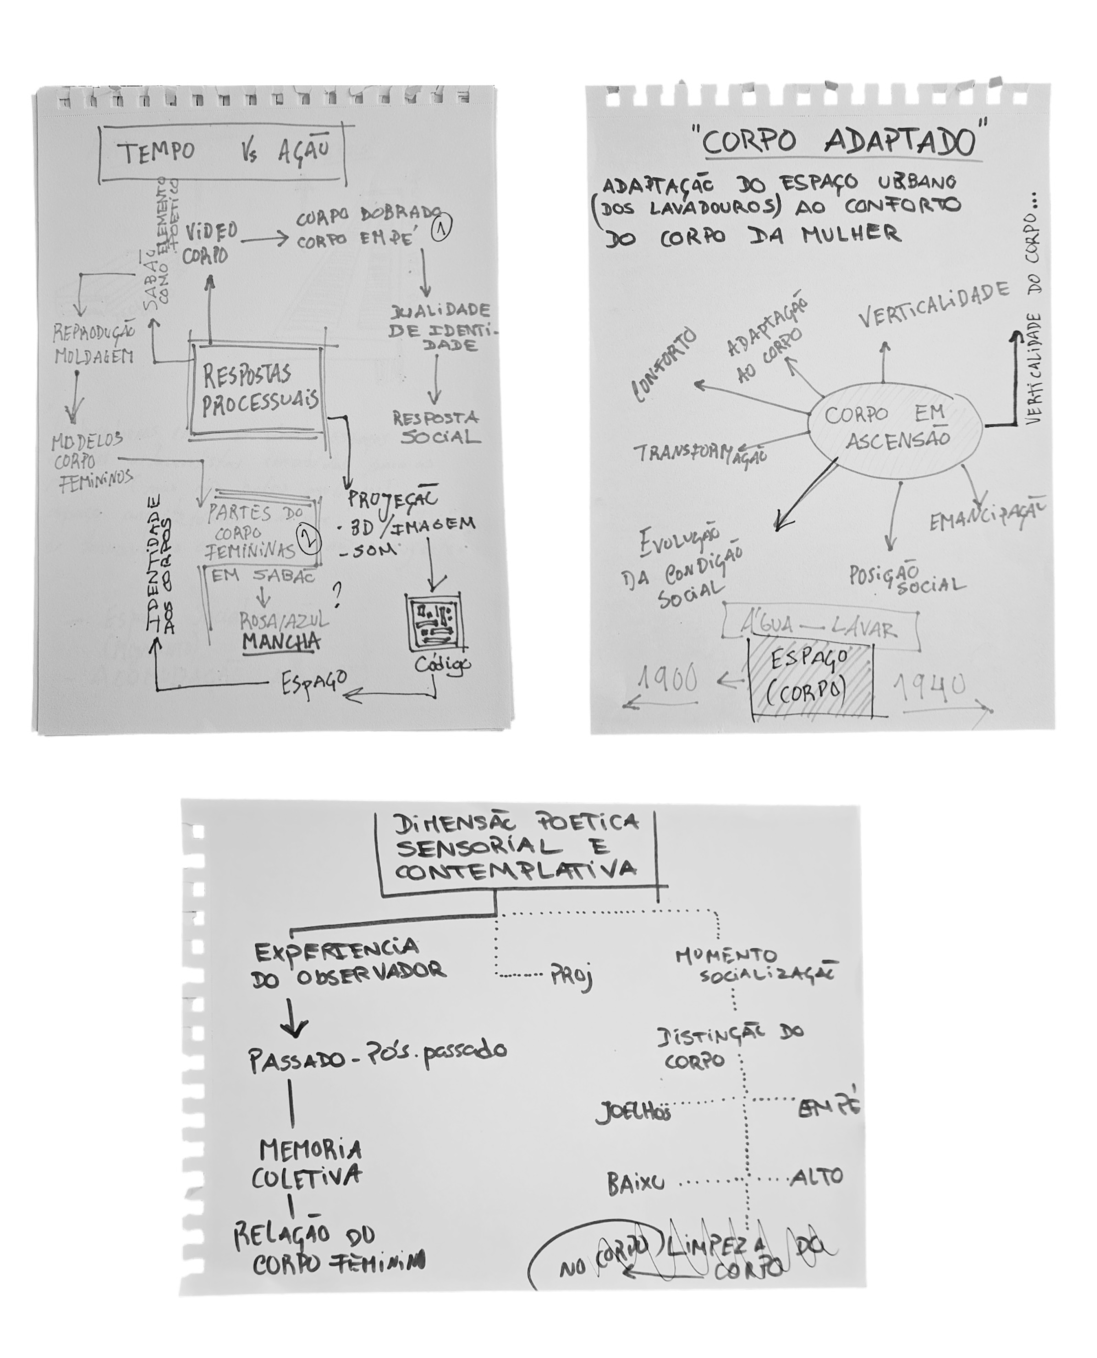 TEMPO Vs AÇÃO
SABÃO
COMO ELEMENTO
POETICO
VIDEO
CORPO
CORPO DOBRADO
CORPO EM PÉ
1
DUALIDADE
DE IDENTI-
DADE
RESPOSTA
SOCIAL
REPRODUÇÃO
MOLDAGEM
MODELOS
CORPO
FEMININOS
RESPOSTAS
PROCESSUAIS
PARTES DO
CORPO
FEMININAS
2
EM SABÃO
ROSA/AZUL
MANCHA
?
PROJEÇÃO
· 3D/IMAGEM
- SOM
Código
ESPAÇO
IDENTIDADE
DOS CORPOS
"CORPO ADAPTADO"
ADAPTAÇÃO DO ESPAÇO URBANO
(DOS LAVADOUROS) AO CONFORTO
DO CORPO DA MULHER
CONFORTO
ADAPTAÇÃO
AO CORPO
VERTICALIDADE
VERTICALIDADE DO CORPO...
CORPO EM
ASCENSÃO
TRANSFORMAÇÃO
EVOLUÇÃO
DA CONDIÇÃO
SOCIAL
POSIÇÃO
SOCIAL
EMANCIPAÇÃO
ÁGUA — LAVAR
ESPAÇO
(CORPO)
1900
1940
DIMENSÃO POETICA
SENSORIAL E
CONTEMPLATIVA
EXPERIENCIA
DO OBSERVADOR
PASSADO - Pós. passado
MEMORIA
COLETIVA
RELAÇÃO DO
CORPO FEMININ
PROJ
MOMENTO
SOCIALIZAÇÃO
DISTINÇÃO DO
CORPO
JOELHOS
EM PÉ
BAIXO
ALTO
LIMPEZA DO
CORPO
NO CORPO